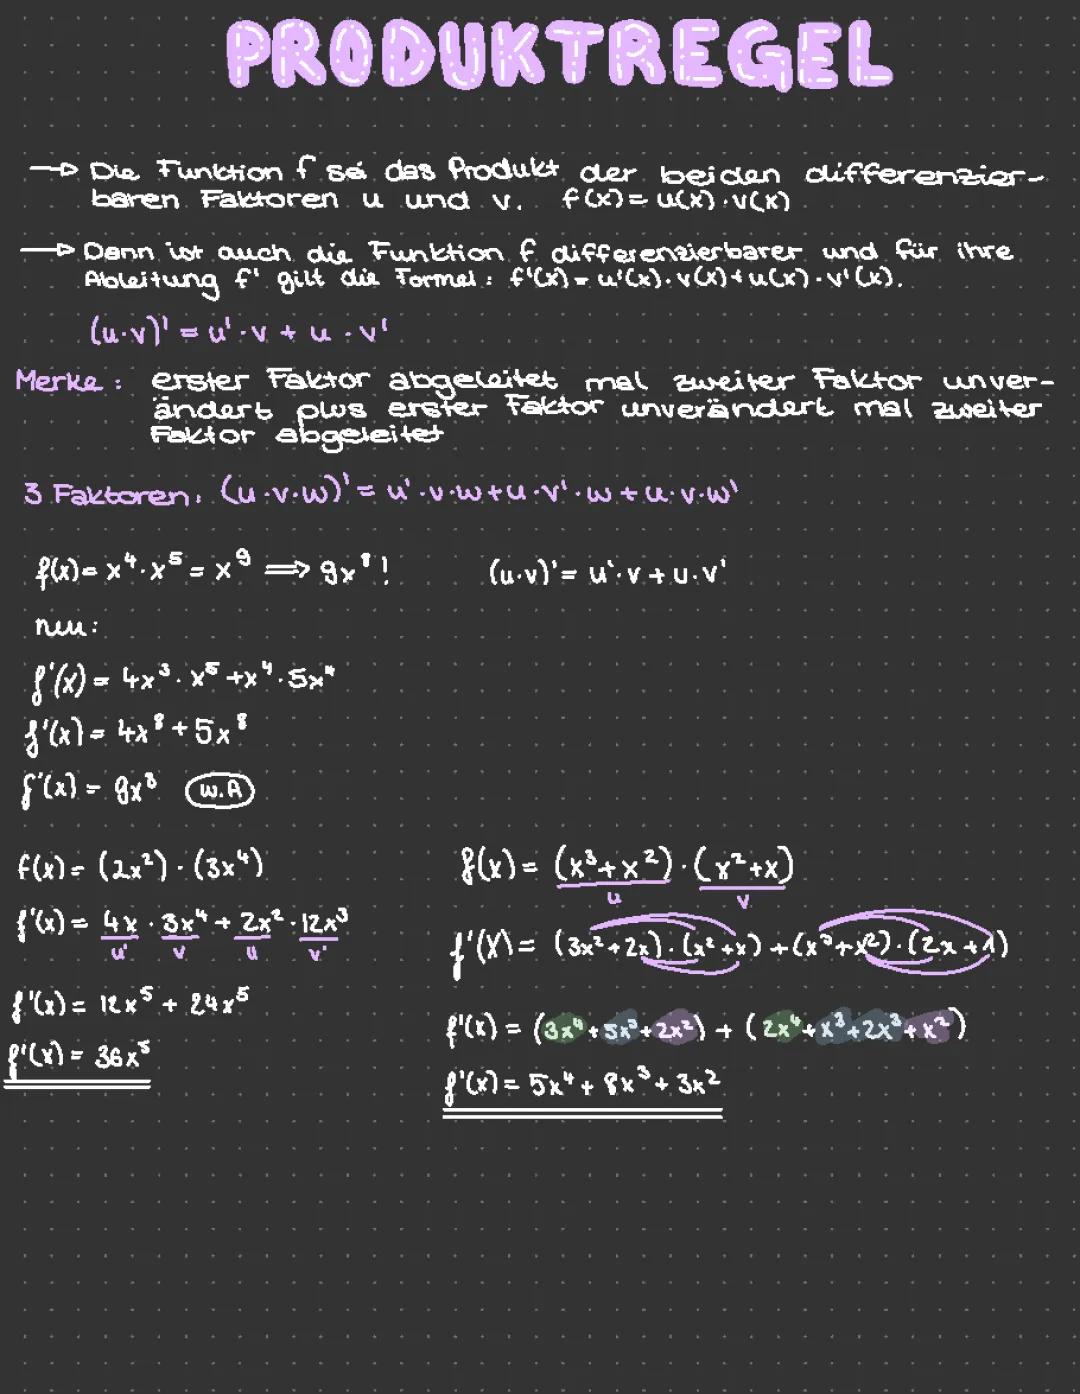 PRODUKTREGEL
→ Die Funktion f sei das Produkt der beiden differenzier-
baren Faktoren u und v. f(x) = u(x)·v(x)
→ Dann ist auch die Funktion f differenzierbarer und für ihre
Ableitung f' gilt die Formel: f'(x) = u'(x)·v(x)+u(x)·v'(x).
(u·v)' = u'·v + u·v'
Merke: erster Faktor abgeleitet mal zweiter Faktor unver-
ändert plus erster Faktor unverändert mal zweiter
Faktor abgeleitet
3 Faktoren: (u·v·w)' = u'·v·w+u·v'·w+u·v·w'
f(x) = x⁴·x⁵ = x⁹ ⟹ 9x⁸! (u·v)' = u'·v+u·v'
neu:
f'(x) = 4x³·x⁵+x⁴·5x⁴
f'(x) = 4x⁸+5x⁸
f'(x) = 9x⁸ w.A
f(x) = (2x²)·(3x⁴)
f'(x) = 4x·3x⁴+2x²·12x³
u' v u v'
f'(x) = 12x⁵+24x⁵
f'(x) = 36x⁵
f(x) = (x³+x²)·(x²+x)
u v
f'(x) = (3x²+2x)·(x²+x)+(x³+x²)·(2x+1)
f'(x) = (3x⁴+5x³+2x²)+(2x⁴+x³+2x³+x²)
f'(x) = 5x⁴+8x³+3x²